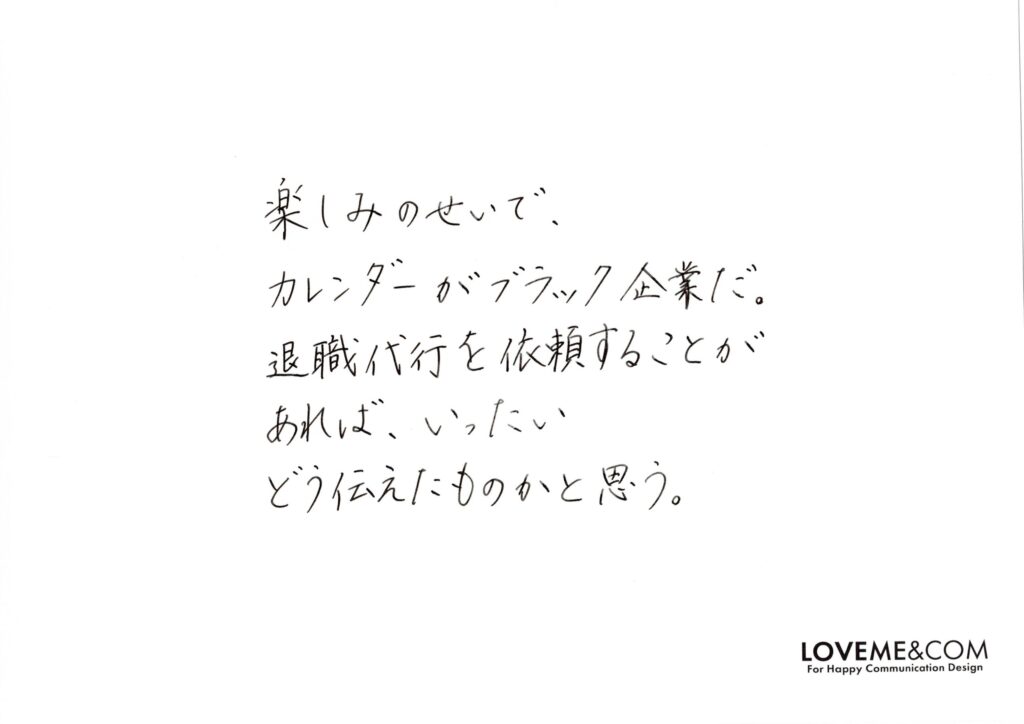 楽しみのせいで、
カレンダーがブラック企業だ。
退職代行を依頼することが
あれば、いったい
どう伝えたものかと思う。
LOVEME&COM
For Happy Communication Design